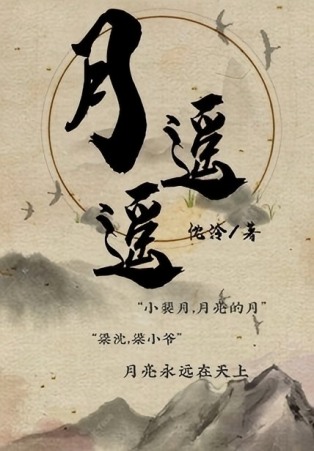 月遥遥
侬泠/著
“小裴月,月亮的月”
“梁沈,梁小爷”
月亮永远在天上